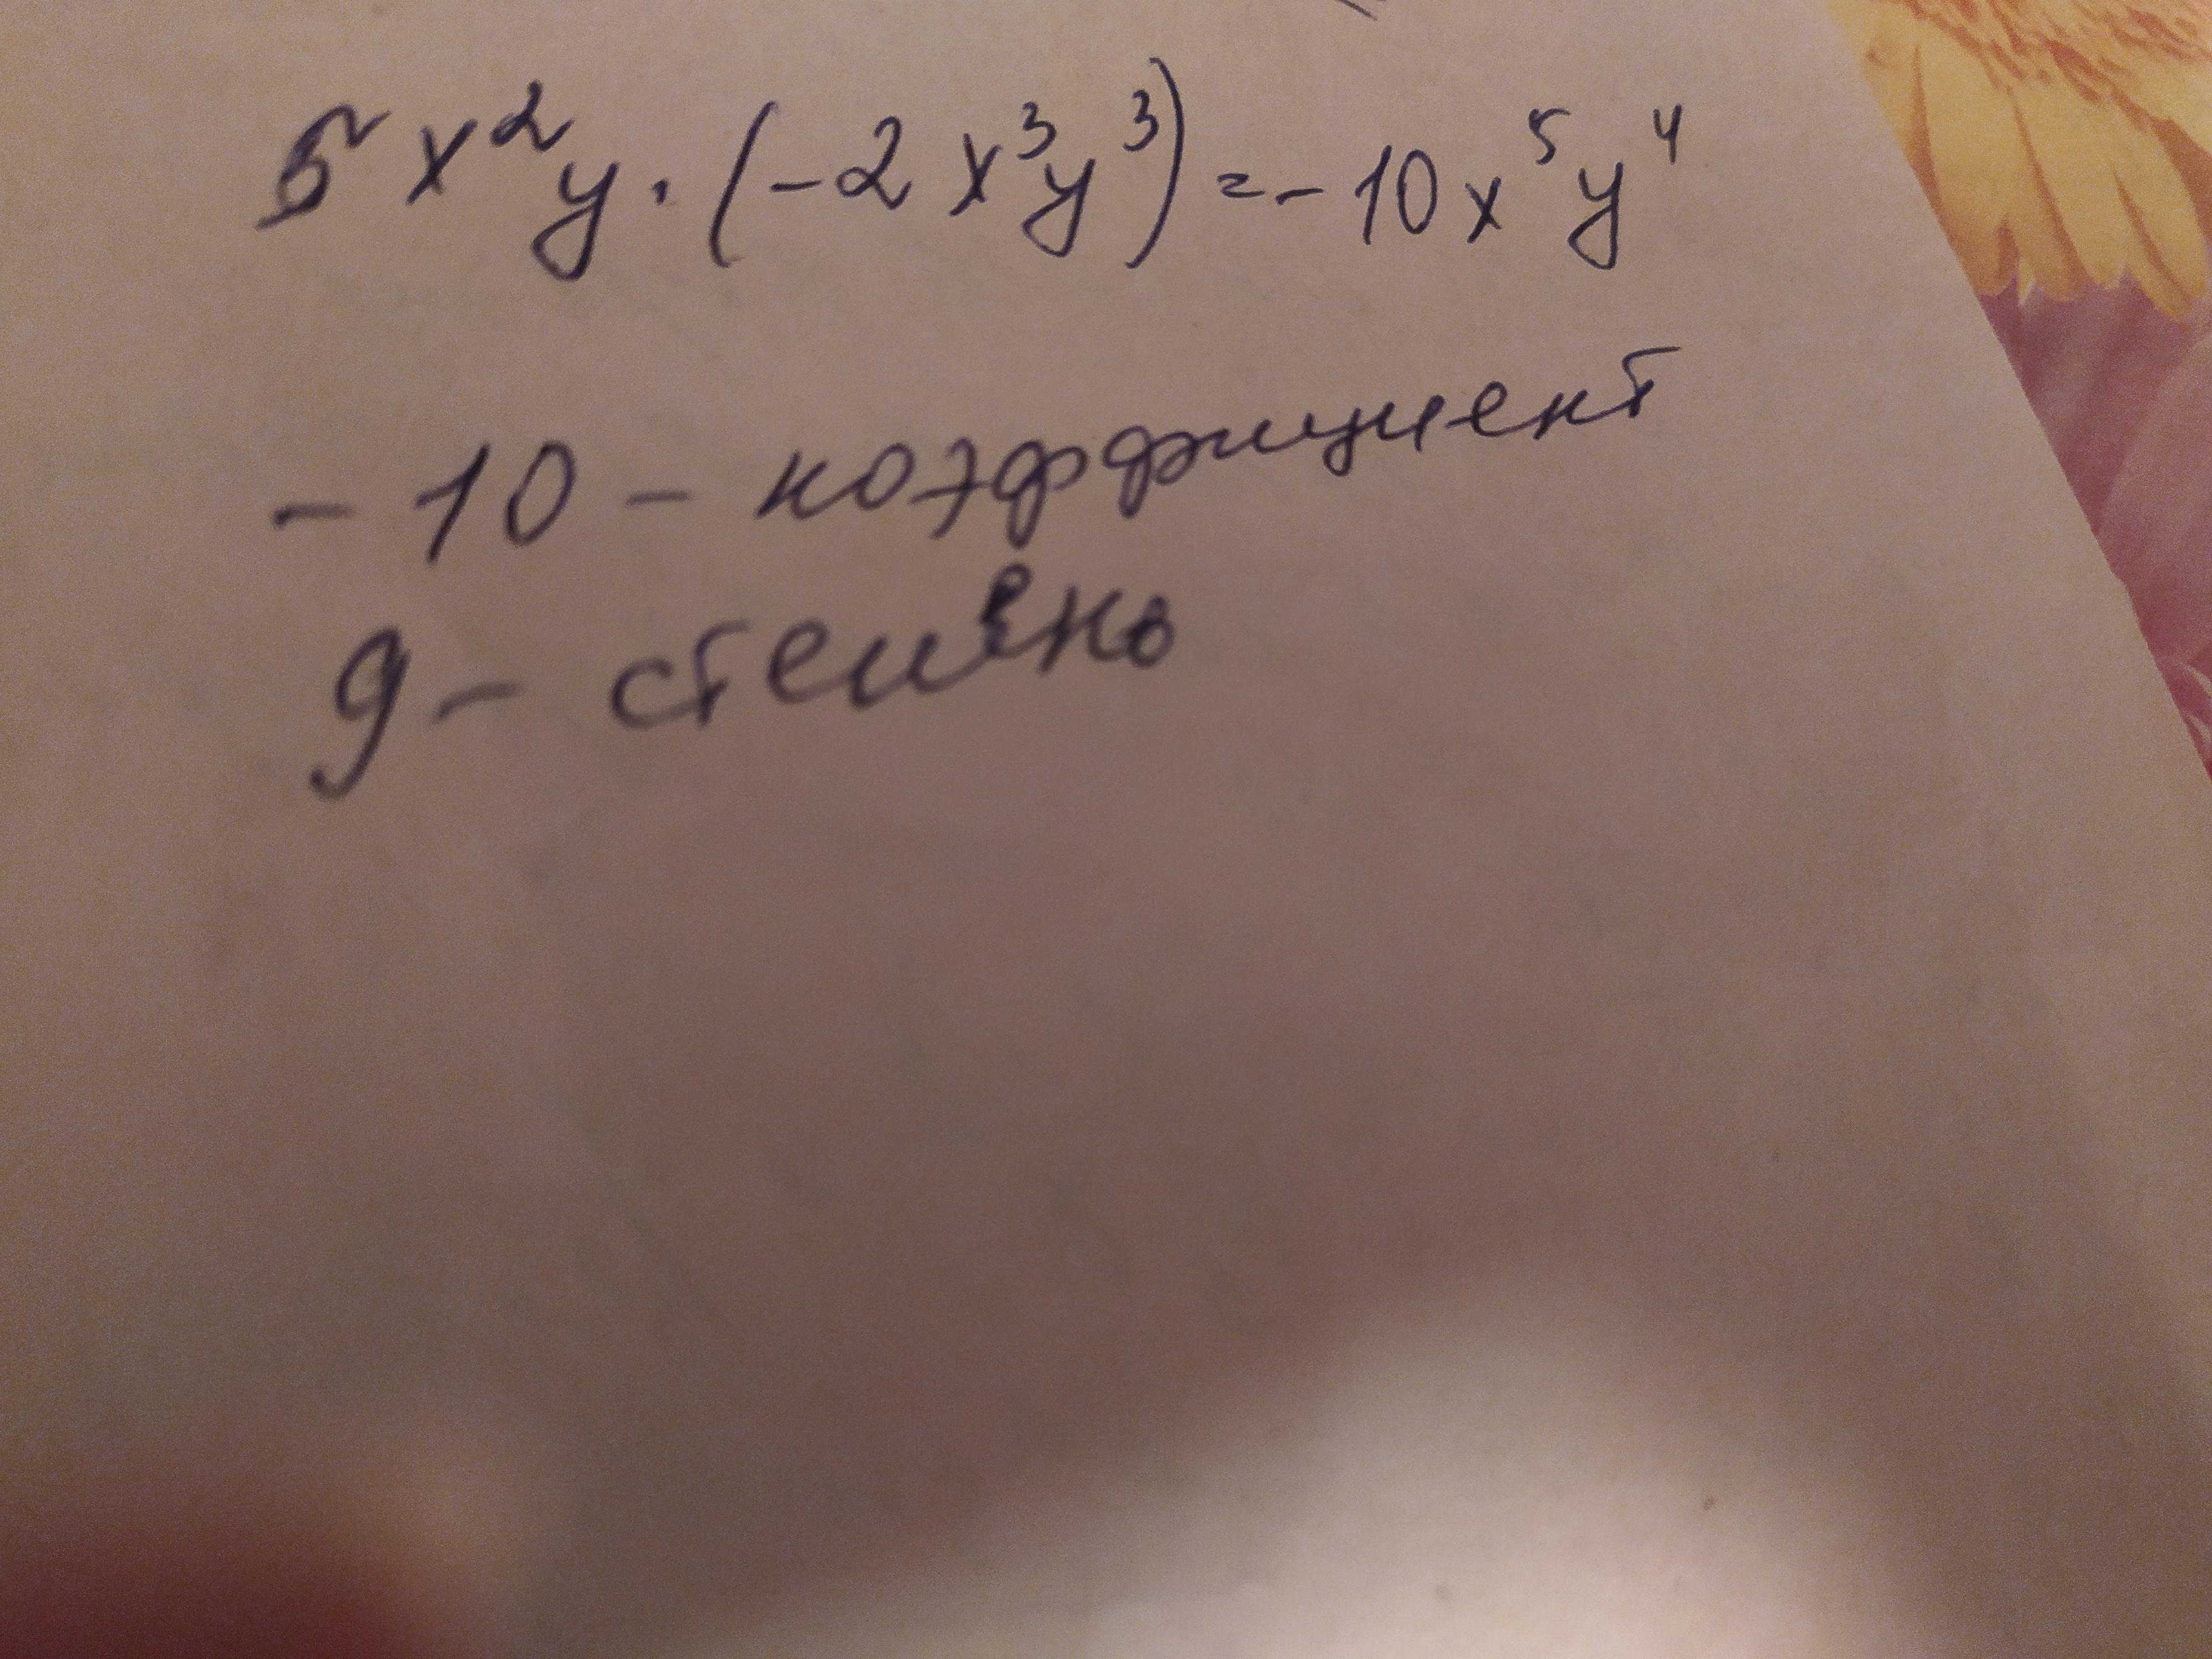 5x²y · (-2x³y³) = -10x⁵y⁴
-10 - коэффициент
9 - степень